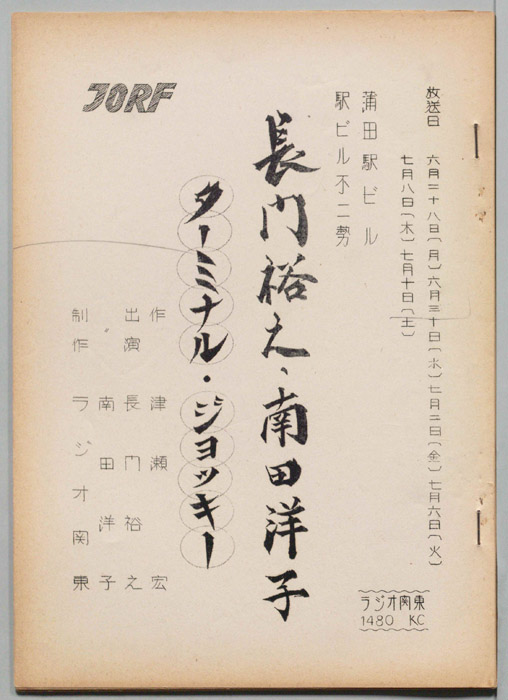 JORF
放送日 六月二十八日(月)六月三十日(水)七月二日(金)七月六日(火)
七月八日(木)七月十日(土)
蒲田駅ビル
駅ビル不二勢
長門裕之、南田洋子
ターミナル・ジョッキー
作 津瀬宏
出演 長門裕之
南田洋子
制作 ラジオ関東
ラジオ関東
1480 KC